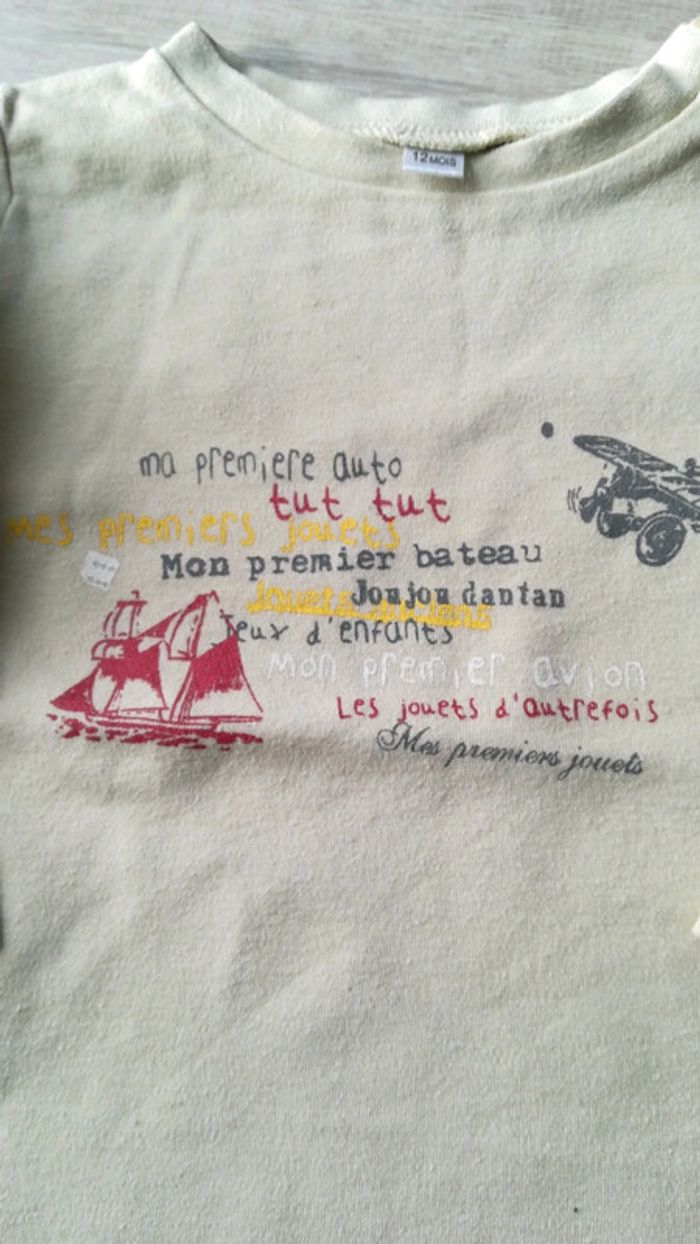 12 MOIS
ma premiere auto
tut tut
Mes premiers jouets
Mon premier bateau
Joujou dantan
Jouets anciens
Jeux d'enfants
Mon premier avion
Les jouets d'autrefois
Mes premiers jouets